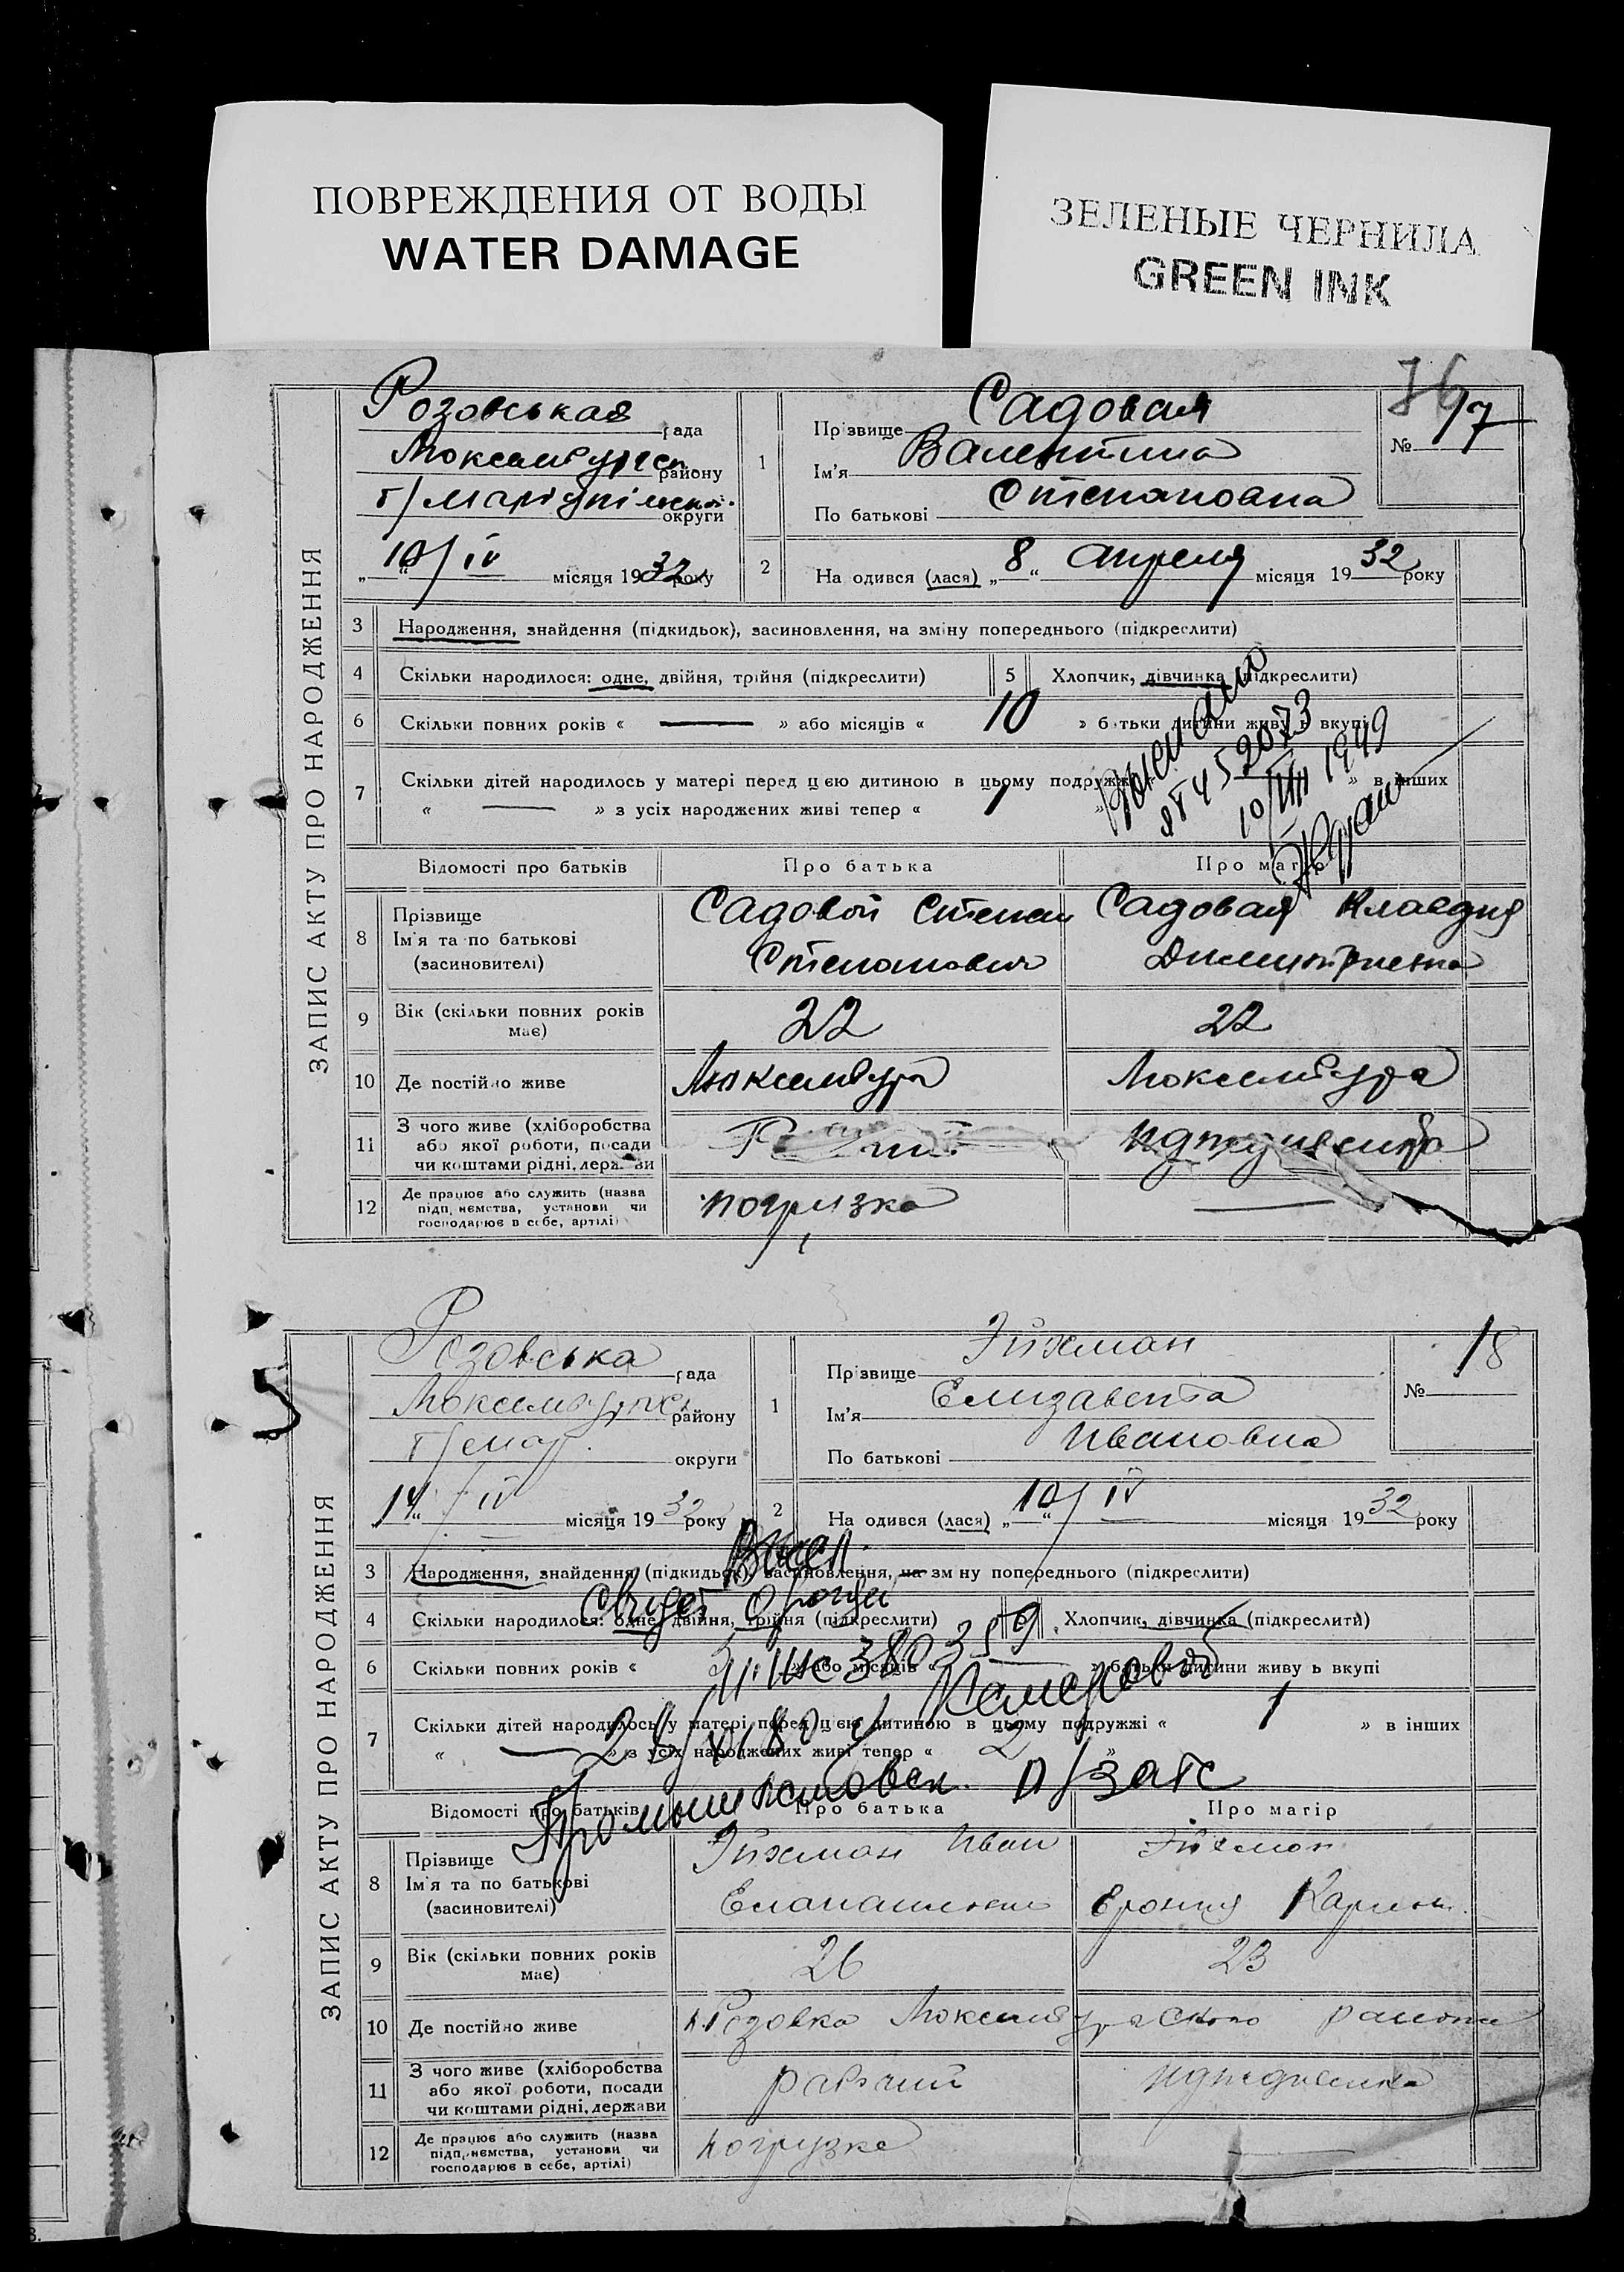 ПОВРЕЖДЕНИЯ ОТ ВОДЫ
WATER DAMAGE
ЗЕЛЕНЫЕ ЧЕРНИЛА
GREEN INK
ЗАПИС АКТУ ПРО НАРОДЖЕННЯ
Розовськая рада
району
округи
10/IV місяця 1932 року
1
Прізвище Садовая
Ім'я Валентина
По батькові Степановна
№ 17
2
На одився (лася) „8“ апреля місяця 1932 року
3 Народження, знайдення (підкидьок), засиновлення, на зміну попереднього (підкреслити)
4 Скільки народилося: одне, двійня, трійня (підкреслити)
5 Хлопчик, дівчинка (підкреслити)
6 Скільки повних років « — » або місяців « 10 » б тьки дитини живу ь вкупі
7 Скільки дітей народилось у матері перед цією дитиною в цьому подружжі » в інших
« — » з усіх народжених живі тепер « 1
10/VIII 1949
Відомості про батьків Про батька Про матір
8 Прізвище
Ім'я та по батькові
(засиновителі)
Садовой Степан
Степанович
Садовая Клавдия
9 Вік (скільки повних років має) 22 22
10 Де постійно живе Люксембург Люксембург
11 З чого живе (хліборобства
або якої роботи, посади
чи коштами рідні, держави
12 Де працює або служить (назва
підприємства, установи чи
господарює в себе, артілі)
погрузка —
ЗАПИС АКТУ ПРО НАРОДЖЕННЯ
Розовська рада
району
округи
14/IV місяця 1932 року
1
Прізвище Эйхман
Ім'я Елизавета
По батькові Ивановна
№ 18
2
На одився (лася) „10/IV місяця 1932 року
3 Народження, знайдення (підкидьок), засиновлення, на зм ну попереднього (підкреслити)
4 Скільки народилося: одне, двійня, трійня (підкреслити)
Хлопчик, дівчинка (підкреслити)
6 Скільки повних років « 3 » або місяців « — » батьки дитини живу ь вкупі
7 Скільки дітей народилось у матері перед цією дитиною в цьому подружжі « 1 » в інших
« — » з усіх народжених живі тепер « 2 »
п/загс
Відомості про батьків Про батька Про матір
8 Прізвище
Ім'я та по батькові
(засиновителі)
Эйхман Иван
Эйхман
9 Вік (скільки повних років має) 26 23
10 Де постійно живе Розовка Люксембургского района
11 З чого живе (хліборобства
або якої роботи, посади
чи коштами рідні, держави
рабочий иждивенка
12 Де працює або служить (назва
підприємства, установи чи
господарює в себе, артілі)
погрузке —